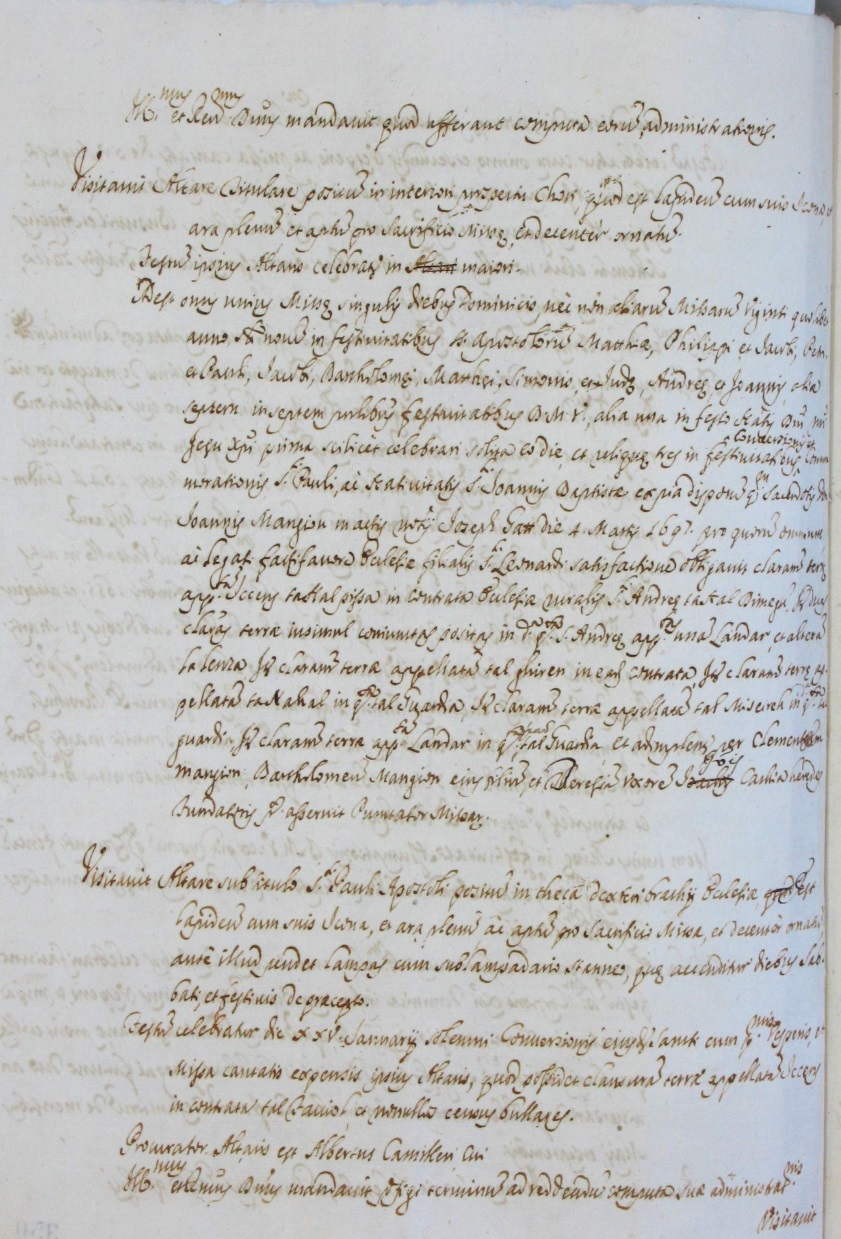 Ill.mus et Rev.mus Dnus mandavit quod afferant computa eorũ administrationis.
Visitavit Altare Titulare positũ in interiori prospectu Chori, quod est lapideũ cum suis Icona, et
ara plenũ et aptũ pro Sacrificio Missę, et decenter ornatũ.
Festũ ipsius Altaris celebratur in maiori.
Adest onus unius Missę singulis diebus Dominicis, nec nõn aliarũ Missarũ Viginti quolibet
anno, novẽ in festivitatibus SS. Apostolorũ Matthiæ, Philippi et Jacobi, Petri,
et Pauli, Jacobi, Bartholomęi, Matthęi, Simonis, et Judę, Andreę, et Joannis, alia
septem in septem festivitatibus B.M.V., alia una in festo Nat.tis Dni nri
Jesu Xpi prima scilicet celebrari solita eo die, et reliquę tres in festivitatibus Conversionis, et Comme
morationis S. Pauli, ac Nativitatis S. Joannis Baptistæ ex pia dispone qm Sacerdotis Don
Joannis Mangion in actis Notrii Joseph Gatt die 4 Martii 1697. pro quorũ omnium
ac favore Ecclesiæ filialis S. Leonardi satisfactione obligavit clausurã terrę
app.tã Icciens ta Hal pissa in contrata Ecclesiæ ruralis S. Andreę ta Hal Dimegh, duas
clausas terræ insimul coniunctas positas in d.a S. Andreę app.tas unã Landar, et alterã
ta lenza, clausurã terræ appellatã tal ghiren in eadẽ contrata, clausurã terræ ap
pellatã ta Nahal in tal Guardia, clausurã terræ appellatã tal Misierah in
guardia clausurã terræ app.tã Landar in tal Guardia, et adimplens per Clementem
Mangion, Bartholomeũ Mangion eius filiũ, et Teresiã uxorẽ Cachia heredes
Fundatoris asseruit Puntator Missarum.
Visitavit Altare sub titulo S. Pauli Apostoli positũ in thecã dexteri brachii Ecclesiæ quod est
lapideũ cum suis Icona, et ara plenũ ac aptũ pro Sacrificio Missæ, et decenter ornatũ
ante illud pendet lampas cum sublampadario stanneo, quę accenditur diebus Sab-
bati, et festivis de præcepto.
Festũ celebratur die XXV. Januarii solemni Conversionis eiusdẽ Sancti cum p.mis Vesperis, et
Missa cantata expensis ipsius Altaris, quod possidet clausurã terræ appellatã Icciens
in contrata et nonullos census bullares.
Procurator Altaris est Albertus Camilleri cui
Ill.mus et R.mus Dnus mandavit p̃figi terminũ ad reddendũ computa suæ administrat.nis
Visitavit